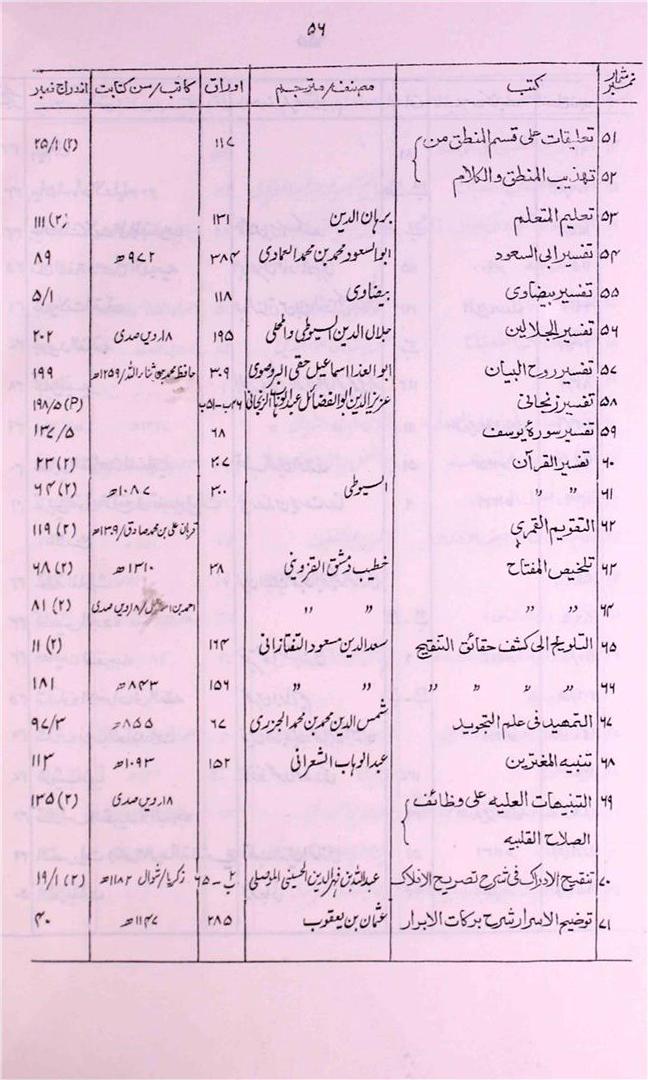 ۵۶
نمبر شمار کتب مصنف/مترجم اوراق کاتب/سن کتابت اندراج نمبر
۵۱ تعلیقات علی قسم المنطق من ۱۱۷ ۲۵/۱ (۲)
۵۲ تہذیب المنطق والکلام
۵۳ تعلیم المتعلم برہان الدین ۱۳۱ ۱۱۱ (۲)
۵۴ تفسیر ابی السعود ابوالسعود محمد بن محمد العمادی ۳۸۴ ۹۷۲ھ ۸۹
۵۵ تفسیر بیضاوی بیضاوی ۱۱۸ ۵/۱
۵۶ تفسیر الجلالین جلال الدین السیوطی والمحلی ۱۹۵ ۱۸ ویں صدی ۲۰۲
۵۷ تفسیر روح البیان ابو الفدا اسماعیل حقی البروسوی ۳۰۹ حافظ محمد ثناء اللہ/۱۲۵۹ھ ۱۹۹
۵۸ تفسیر زنجانی عزیز الدین ابو الفضائل عبدالوہاب الزنجانی ۴۶ب-۵۱ب ۱۹۸/۵ (P)
۵۹ تفسیر سورۂ یوسف ۶۸ ۱۳۷/۵
۶۰ تفسیر القرآن ۲۰۷ ۲۳ (۲)
۶۱ " " السیوطی ۳۰۰ ۱۰۸۷ھ ۶۴ (۲)
۶۲ التقویم القمری قربان علی بن محمد صادق/۱۳۰۹ھ ۱۱۹ (۲)
۶۳ تلخیص المفتاح خطیب دمشق القزوینی ۳۸ ۱۳۱۰ھ ۶۸ (۲)
۶۴ " " " " احمد بن اسمٰعیل/۱۸ویں صدی ۸۱ (۲)
۶۵ التلویح الی کشف حقائق التنقیح سعد الدین مسعود التفتازانی ۱۶۴ ۱۱ (۲)
۶۶ " " " " " " ۱۵۶ ۸۴۳ھ ۱۸۱
۶۷ التمھید فی علم التجوید شمس الدین محمد بن محمد الجزری ۶۷ ۸۵۵ھ ۹۷/۳
۶۸ تنبیہ المغترین عبدالوہاب الشعرانی ۱۵۲ ۱۰۹۳ھ ۱۱۳
۶۹ التنبیھات العلیہ علی وظائف ۱۸ ویں صدی ۱۳۵ (۲)
الصلاح القلبیہ
۷۰ تنقیح الادراک فی شرح تصریح الافلاک عبداللہ بن فخر الدین الحسینی الموصلی ۲ب-۶۵ زکریا/شوال ۱۱۸۲ھ ۱۹/۱ (۲)
۷۱ توضیح الاسرار شرح برکات الابرار عثمان بن یعقوب ۲۸۵ ۱۱۴۷ھ ۴۰